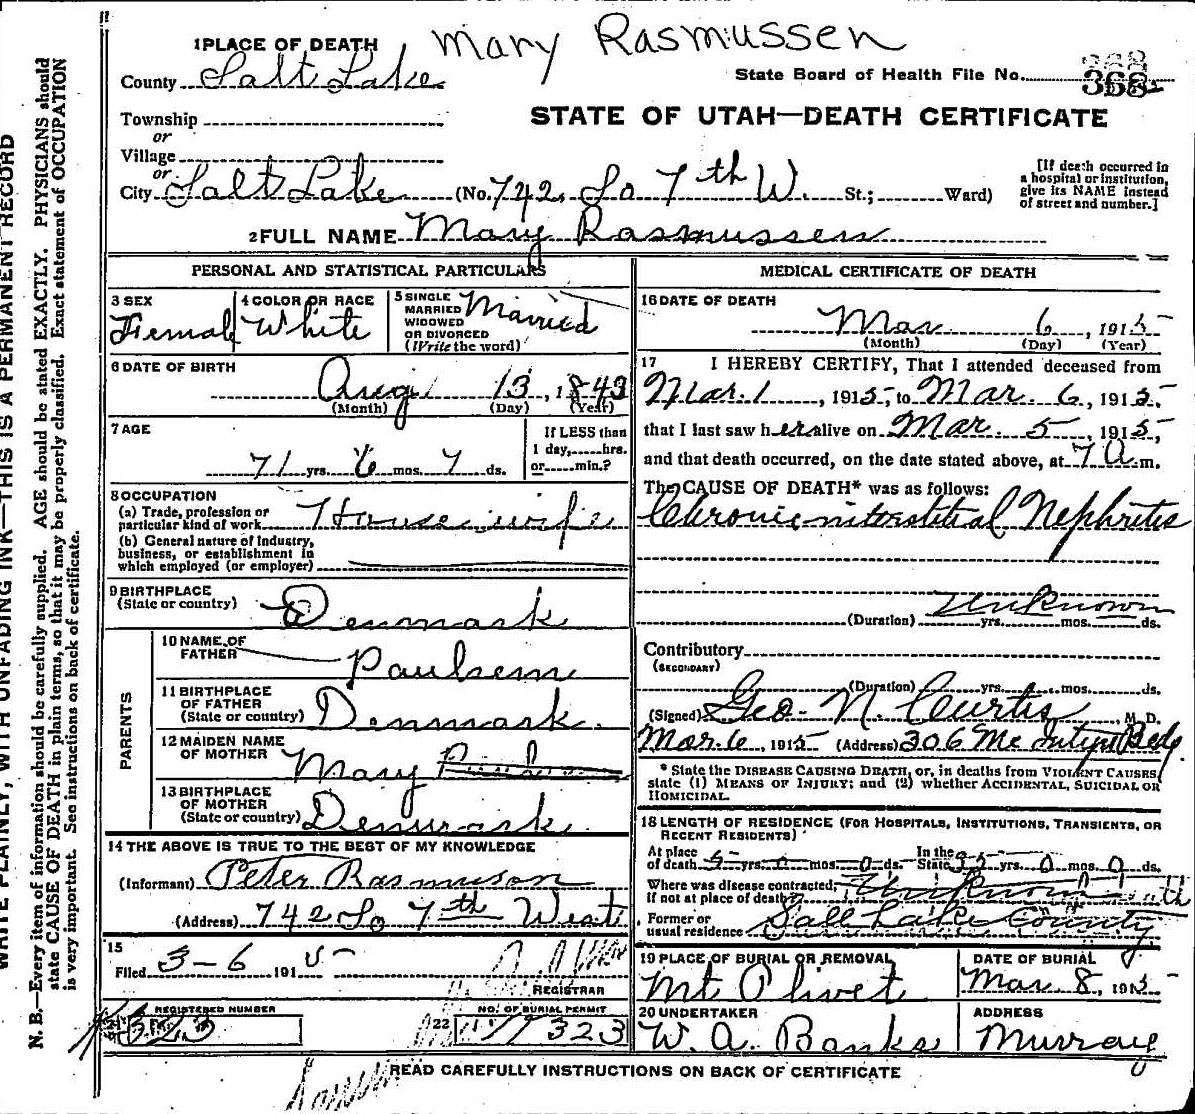 Mary Rasmussen
1 PLACE OF DEATH
County Salt Lake
State Board of Health File No. 368
Township
or
Village
or
City Salt Lake (No. 742, So 7th W. St.; Ward)
STATE OF UTAH—DEATH CERTIFICATE
[If death occurred in
a hospital or institution,
give its NAME instead
of street and number.]
2 FULL NAME Mary Rasmussen
PERSONAL AND STATISTICAL PARTICULARS
3 SEX
Female
4 COLOR OR RACE
White
5 SINGLE
MARRIED
WIDOWED
OR DIVORCED
(Write the word)
Married
6 DATE OF BIRTH
Aug 13, 1843
(Month) (Day) (Year)
7 AGE
71 yrs. 6 mos. 7 ds.
If LESS than
1 day, hrs.
or min.?
8 OCCUPATION
(a) Trade, profession or
particular kind of work Housewife
(b) General nature of industry,
business, or establishment in
which employed (or employer)
9 BIRTHPLACE
(State or country) Denmark
PARENTS
10 NAME OF
FATHER Paulsem
11 BIRTHPLACE
OF FATHER
(State or country) Denmark.
12 MAIDEN NAME
OF MOTHER Mary
13 BIRTHPLACE
OF MOTHER
(State or country) Denmark.
14 THE ABOVE IS TRUE TO THE BEST OF MY KNOWLEDGE
(Informant) Peter Rasmuson
(Address) 742 So 7th West
15
Filed 3-6 1915
REGISTRAR
REGISTERED NUMBER
323
22 NO. OF BURIAL PERMIT
323
MEDICAL CERTIFICATE OF DEATH
16 DATE OF DEATH
Mar 6, 1915
(Month) (Day) (Year)
17 I HEREBY CERTIFY, That I attended deceased from
Mar. 1, 1915, to Mar. 6, 1915,
that I last saw her alive on Mar. 5, 1915,
and that death occurred, on the date stated above, at 7 a.m.
The CAUSE OF DEATH* was as follows:
Chronic interstetial Nephretis
Unknown
(Duration) yrs. mos. ds.
Contributory
(SECONDARY)
(Duration) yrs. mos. ds.
(Signed) Geo. N. Curtis, M. D.
Mar. 6, 1915 (Address) 306 McIntyre Bldg.
* State the DISEASE CAUSING DEATH, or, in deaths from VIOLENT CAUSES,
state (1) MEANS OF INJURY; and (2) whether ACCIDENTAL, SUICIDAL OR
HOMICIDAL.
18 LENGTH OF RESIDENCE (FOR HOSPITALS, INSTITUTIONS, TRANSIENTS, OR
RECENT RESIDENTS)
At place
of death 5 yrs. 0 mos. 0 ds.
In the
State yrs. 0 mos. 0 ds.
Where was disease contracted,
if not at place of death? Unknown
Former or
usual residence Salt Lake County
19 PLACE OF BURIAL OR REMOVAL
Mt Olivet
DATE OF BURIAL
Mar 8, 1915
20 UNDERTAKER
W. A. Banks
ADDRESS
Murray
READ CAREFULLY INSTRUCTIONS ON BACK OF CERTIFICATE
WRITE PLAINLY, WITH UNFADING INK—THIS IS A PERMANENT RECORD
N. B.—Every item of information should be carefully supplied. AGE should be stated EXACTLY. PHYSICIANS should
state CAUSE OF DEATH in plain terms, so that it may be properly classified. Exact statement of OCCUPATION
is very important. See instructions on back of certificate.